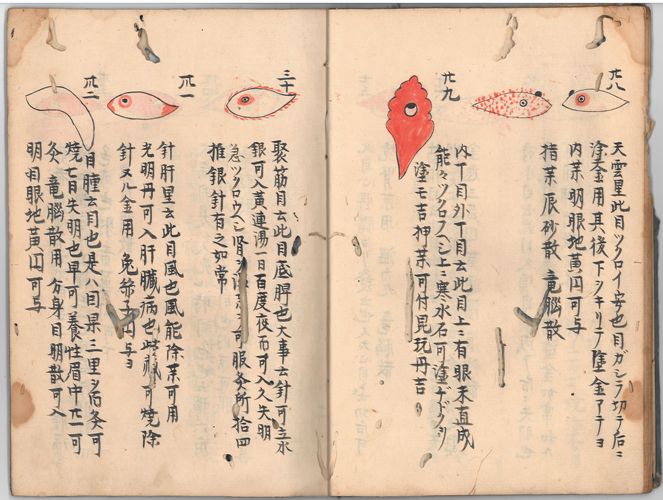 卄八
天雲星此目ツクロイ安也目ガシラ切テ后ニ
塗金用其後下シキリテ塗金アテヨ
内薬明眼地黄円可与
指薬辰砂散 竜脳散
卄九
内丁目外丁目云此目上ニ有眼未直成
能々ツクロフヘシ上ニ寒水石可塗
塗モ吉押薬可付見玩丹吉
三十
聚筋目云此目感脾也大事云針可立水
銀可入黄連湯一日百度夜而可入久失明
急ツクロウヘシ腎 可服灸所拾四
推銀針有之如常
卅一
針肝里云此目風也風能除薬可用
光明丹可入肝臓病也 可焼除
針ヌル金用 兔 円可与ヨ
卅二
目腫云目也是ハ目果三里 灸可
焼七日失明也再可養性眉中 一可
灸竜脳散用分身目明散可入
明目眼地黄円可与